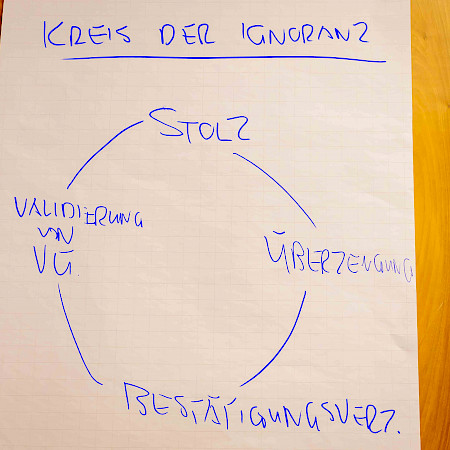 KREIS DER IGNORANZ
STOLZ
ÜBERZEUGUNG
BESTÄTIGUNGSVERZ.
VALIDIERUNG
VON
VÜ